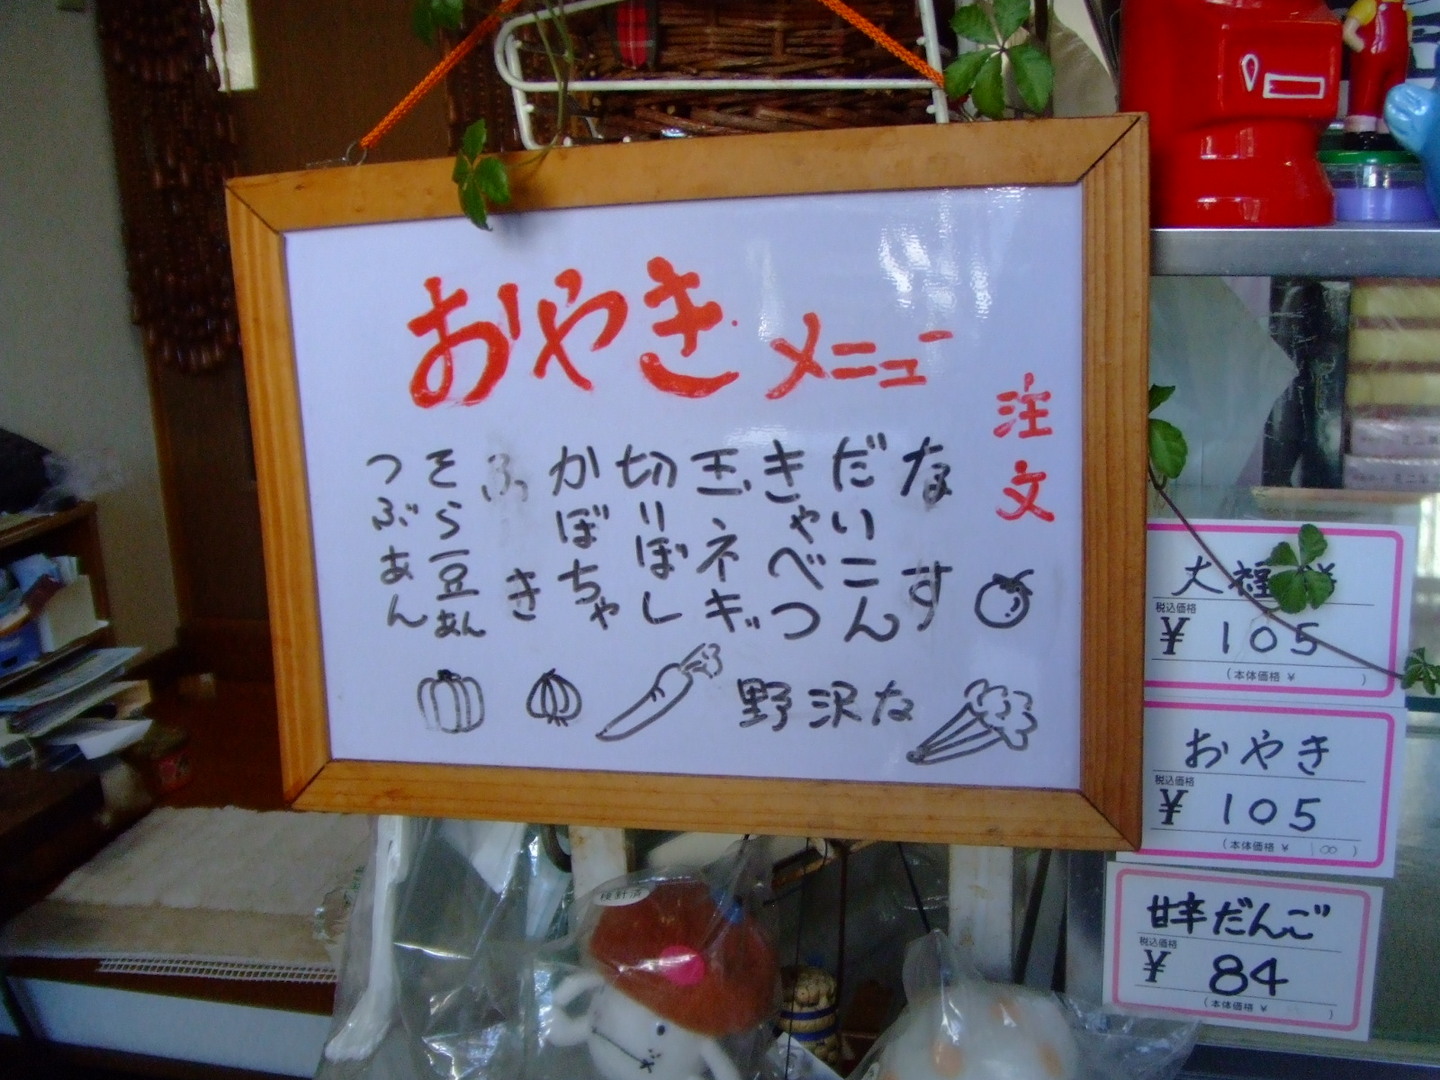 おやき メニュー
注文
なす
だいこん
きゃべつ
玉ネギ
切りぼし
かぼちゃ
ふき
そら豆あん
つぶあん
野沢な
大福
税込価格
¥105
(本体価格 ¥ )
おやき
税込価格
¥105
(本体価格 ¥ 100 )
甘辛だんご
税込価格
¥84
(本体価格 ¥ )
検針済